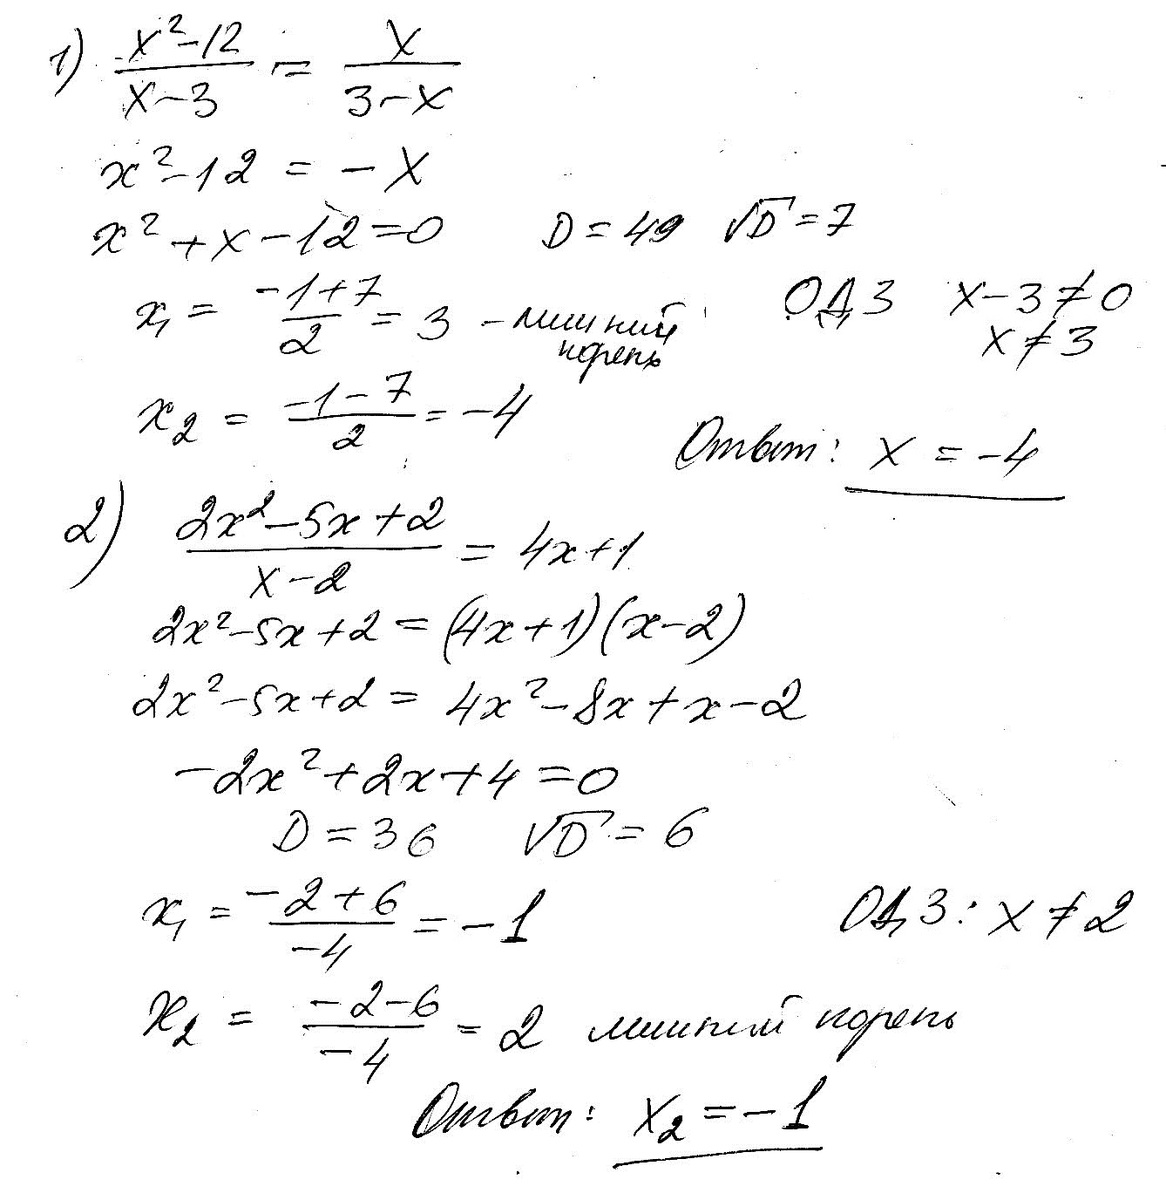 1) x²-12/x-3 = x/3-x
x²-12 = -x
x²+x-12=0 D=49 √D=7
x₁ = -1+7/2 = 3 - лишний корень ОДЗ x-3≠0
x≠3
x₂ = -1-7/2 = -4
Ответ: x = -4
2) 2x²-5x+2/x-2 = 4x+1
2x²-5x+2 = (4x+1)(x-2)
2x²-5x+2 = 4x²-8x+x-2
-2x²+2x+4=0
D=36 √D=6
x₁ = -2+6/-4 = -1 ОДЗ: x≠2
x₂ = -2-6/-4 = 2 лишний корень
Ответ: x₂ = -1